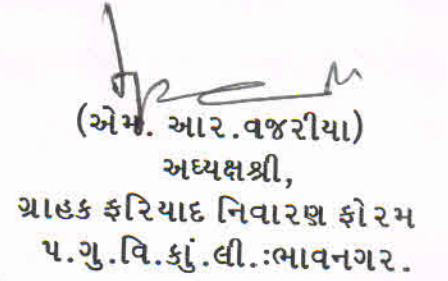 (એમ. આર.વજરીયા)
અધ્યક્ષશ્રી,
ગ્રાહક ફરિયાદ નિવારણ ફોરમ
પ.ગુ.વિ.કું.લી.:ભાવનગર.